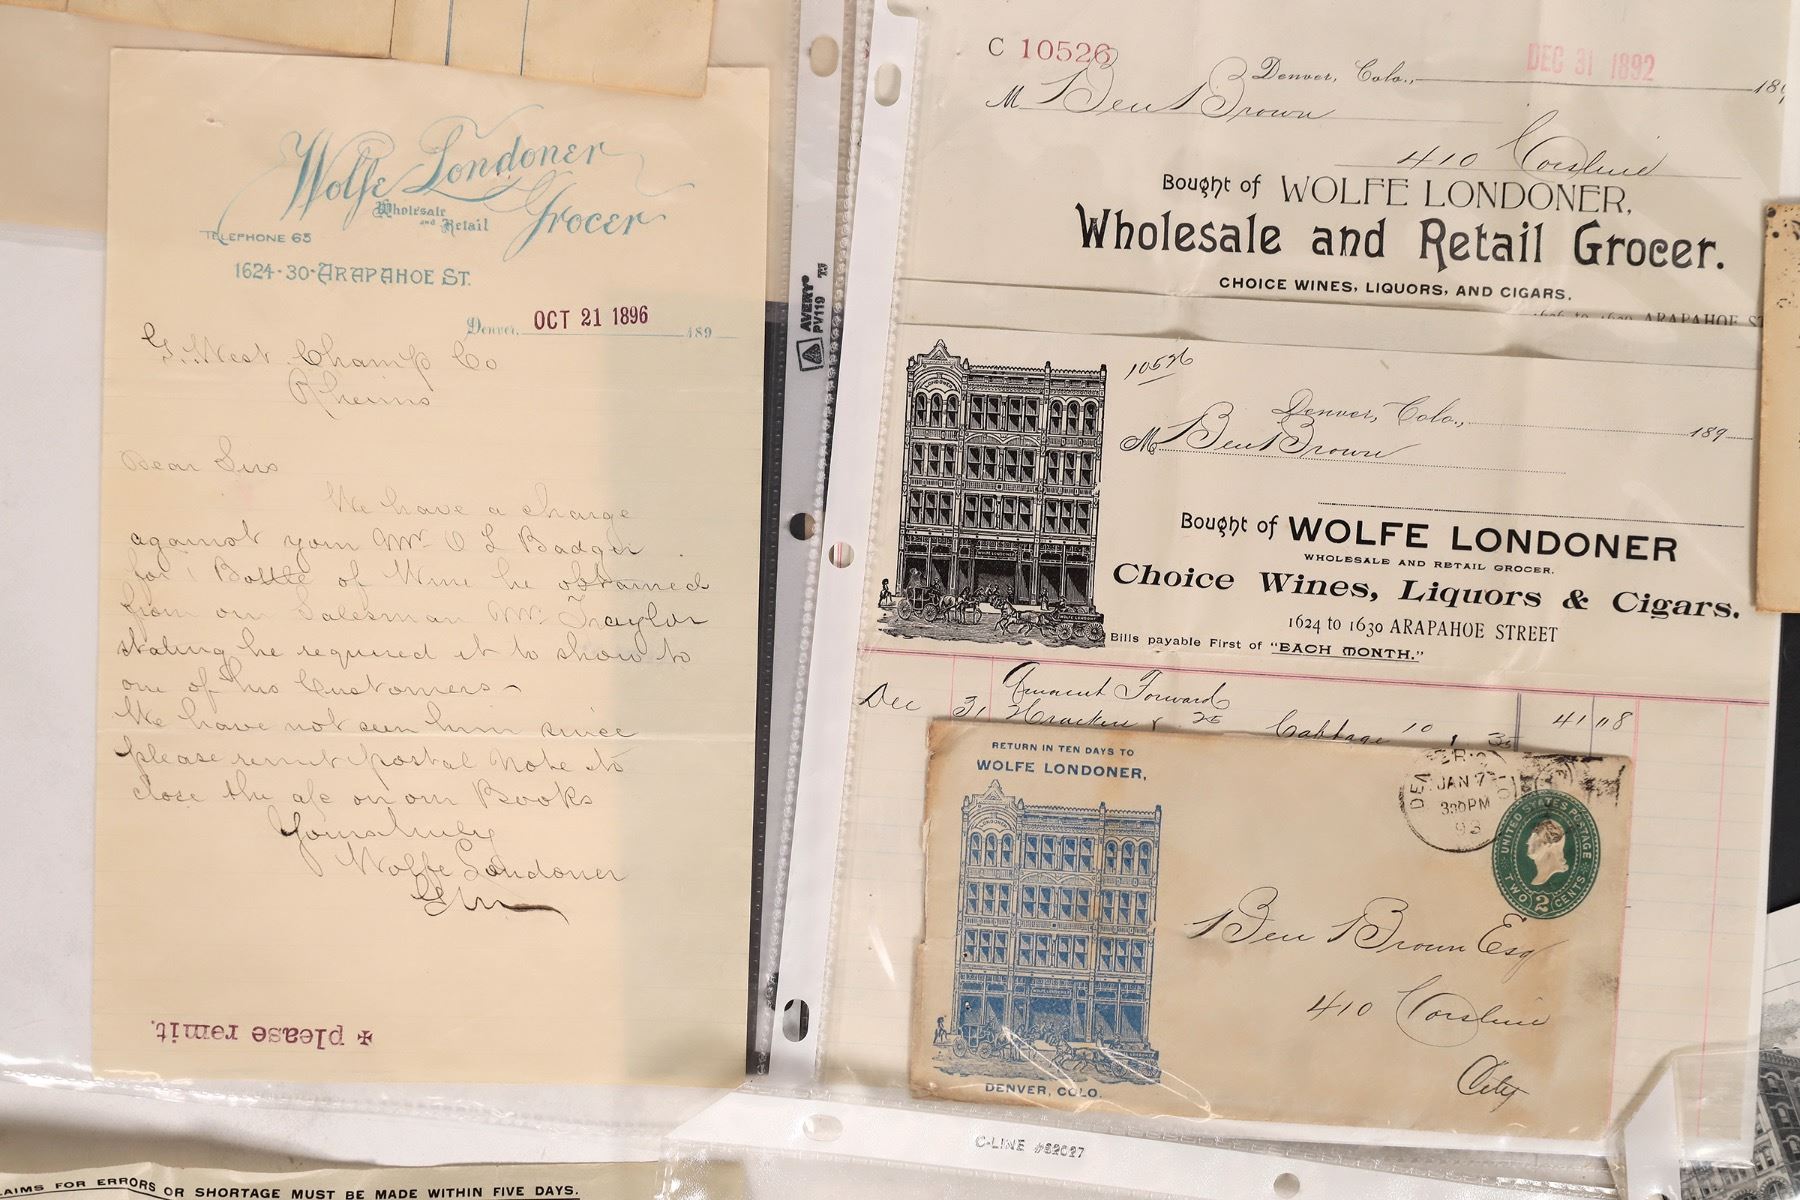 Wolfe Londoner
Wholesale
and Retail
Grocer
TELEPHONE 65
1624-30-ARAPAHOE ST.
Denver, OCT 21 1896 189
G. West Champ Co
Rheims
Dear Sirs
We have a charge
against your Mr. O L Badger
for 1 Bottle of Wine he obtained
from our Salesman Mr. Traylor
stating he required it to show to
one of his Customers -
We have not seen him since
please remit postal Note to
close the a/c on our Books
Yours truly
Wolfe Londoner
✠ please remit.
AIMS FOR ERRORS OR SHORTAGE MUST BE MADE WITHIN FIVE DAYS.
AVERY
PV119
C 10526
Denver, Colo., DEC 31 1892 189
M Ben Brown
410
Bought of WOLFE LONDONER,
Wholesale and Retail Grocer.
CHOICE WINES, LIQUORS, AND CIGARS.
1626 to 1630 ARAPAHOE ST
LONDONER
10526
Denver, Colo., 189
M Ben Brown
Bought of WOLFE LONDONER
WHOLESALE AND RETAIL GROCER.
Choice Wines, Liquors & Cigars.
1624 to 1630 ARAPAHOE STREET
Bills payable First of "EACH MONTH."
Dec 31 Amount Forward 41 08
Crackers & 25 Cabbage 10 35
RETURN IN TEN DAYS TO
WOLFE LONDONER,
LONDONER
WOLFE LONDONER
DENVER, COLO.
JAN 7
330PM
93
UNITED STATES POSTAGE
TWO 2 CENTS
Ben Brown Esq
410
City
C-LINE #62027